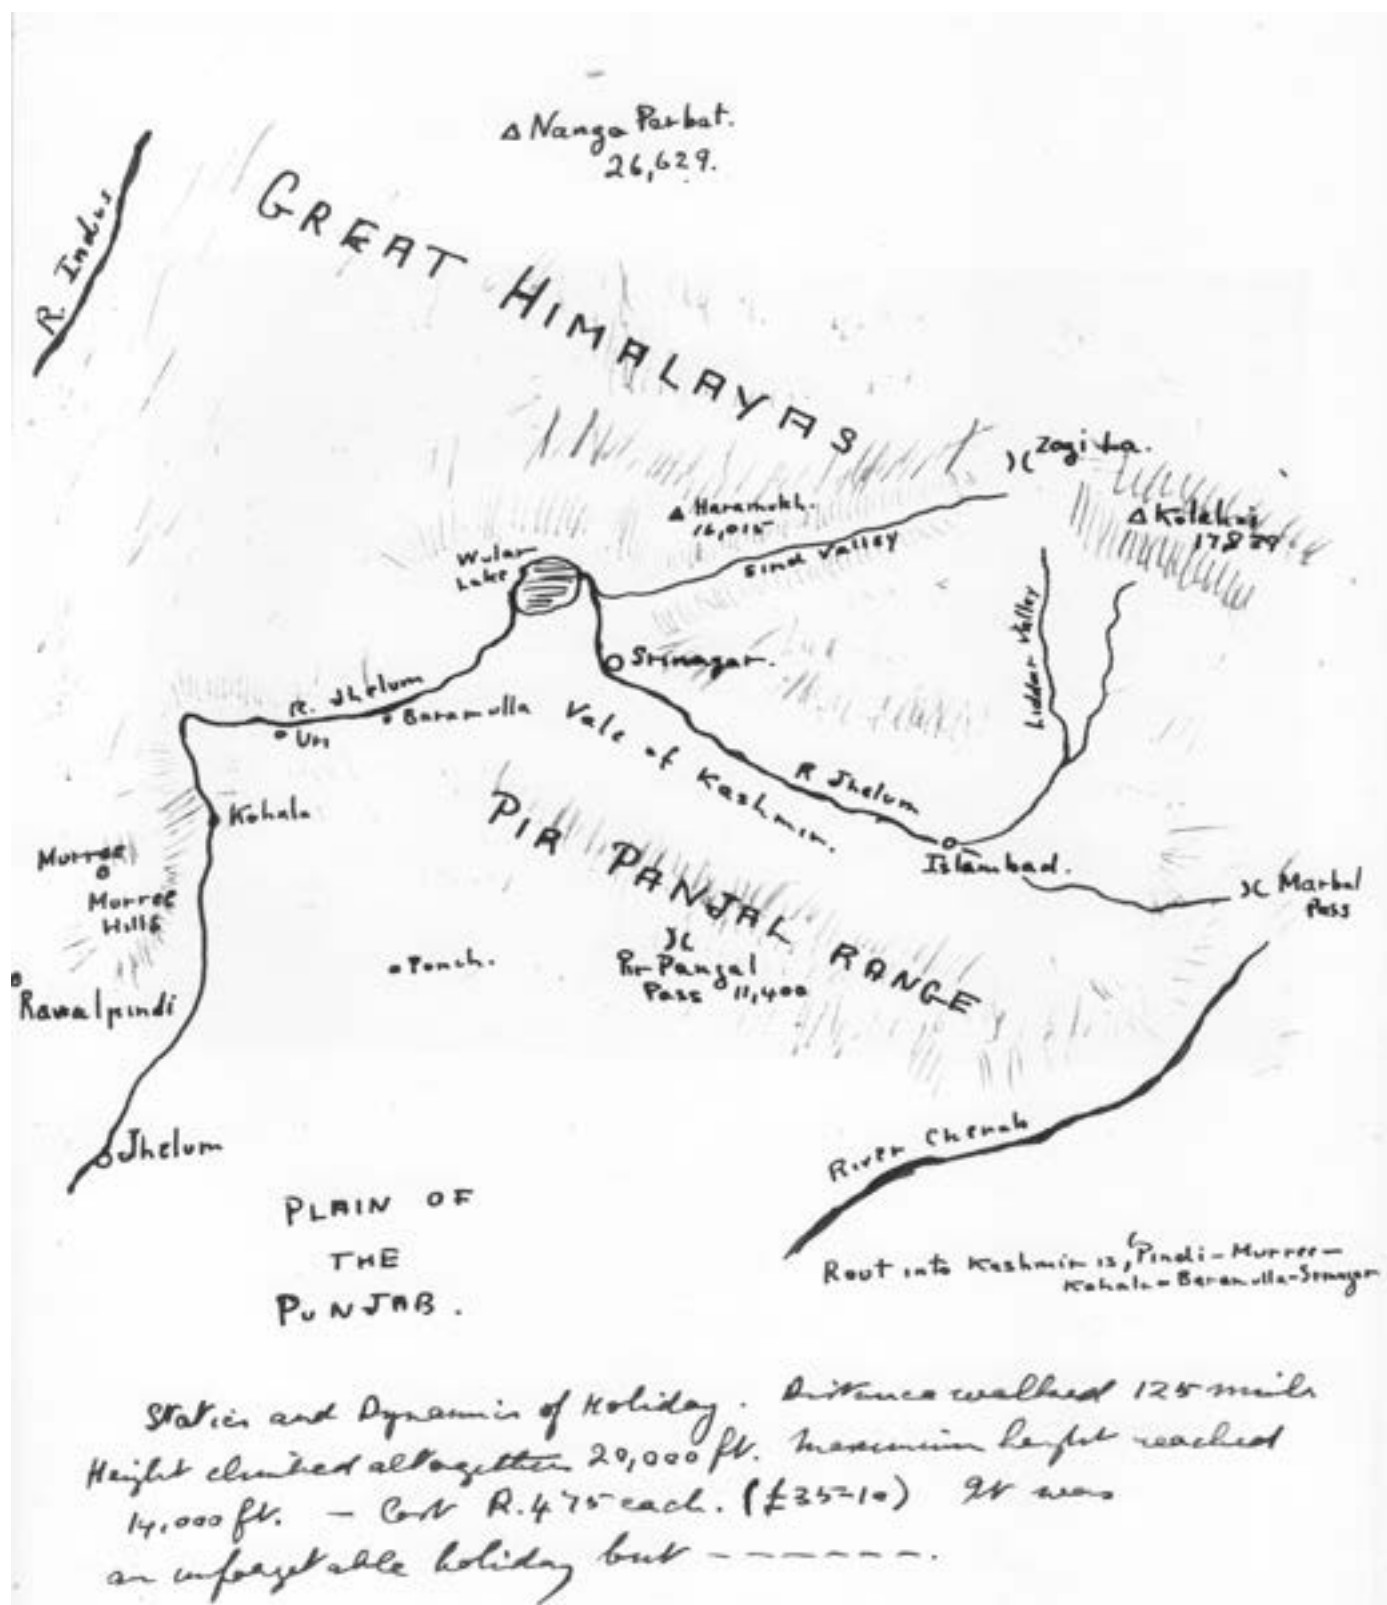 △ Nanga Parbat.
26,629.
R. Indus
GREAT HIMALAYAS
Zogi La.
△ Haramukh.
16,015
△ Kolahoi
Sind Valley
Wular
Lake
Liddar Valley
Srinagar.
R. Jhelum
Baramulla
Uri
Vale of Kashmir.
R Jhelum
Kohala
PIR PANJAL RANGE
Islambad.
Murree
Murree
Hills
Marbal
Pass
Ponch.
Pir Pangal
Pass 11,400
Rawalpindi
Jhelum
River Chenab
PLAIN OF
THE
PUNJAB.
Rout into Kashmir is, Pindi-Murree-
Kohala-Baramulla-Srinagar
Statics and Dynamics of Holiday. Distance walked 125 miles
Height climbed altogether 20,000 ft. Maximum height reached
14,000 ft. - Cost R. 475 each. (£35-10) It was
an unforgetable holiday but -------.